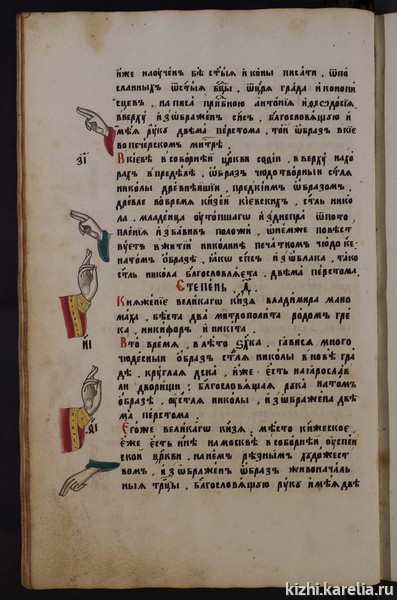 и́же наоучен бѣ ст҃ыя и́коны писати . ѿпо
сланныхъ ѿст҃ыя бц҃ы , ѿцр҃я града и́конопи
сцевъ , написа прпⷣбною антонїѧ и́ѳеѡдосїѧ ,
вверху и́зѡбраженъ сп҃съ , бл҃гословѧщаѡ и́
мѣѧ рꙋка двѣма перстома , той ѡбразъ вкїе
вопечерскомъ мⷭ҇трѣ .
зі҃
Вкїевѣ в соборнѣй цр҃кви софїи , вверху на хо
рахъ в предѣлѣ , ѡбразъ чюдотворный ст҃лѧ
николы древнѣйшїй , предкїимъ ѡбразомъ ,
древле во времѧ кн҃зей кїевскихъ , ст҃ль нико
ла , младенца оутопшаго и́з днепра ѿ пото
пленїѧ и́збавивъ положи , ѡ немже повѣст
вуетъ в житїи николинѣ печатномъ чюдо ке ,
на томъ ѡбразѣ , ꙗкѡ сп҃съ и́з ѡблака , тако
ст҃ль никола благословлѧетъ , двѣма перстома .
Степень , д҃ .
Кнѧженїе великагѡ кн҃зѧ владимира мано
маха , бѣста два митрополита родомъ гре
ка , никифоръ и никита .
иі҃
В то времѧ , в лѣто ѕх҃ка , ꙗвисѧ много
чюдесный ѡбразъ ст҃лѧ николы в новѣ гра
дѣ , круглаѧ дска , и́же есть на ꙗрослав
ли дворищи : благословѧщаѧ рꙋка на томъ
ѡбразѣ , оу ст҃лѧ николы , и́зѡбражена двѣ
ма перстома .
ѳі҃
Егоже великагѡ кн҃зѧ , мѣсто кнѧжеское
еже есть нн҃ѣ на москвѣ в соборнѣй оуспен
ской цр҃кви , на немъ рѣзнымъ художест
вомъ , и́зѡбраженъ ѡбразъ живоначал
ныѧ трⷪ҇цы , благословѧщую рꙋку и́мѣѧ двѣ
kizhi.karelia.ru